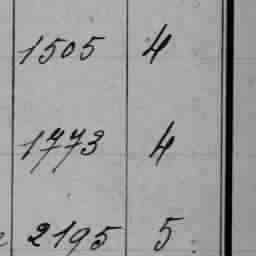 1505 4
1773 4
2195 5